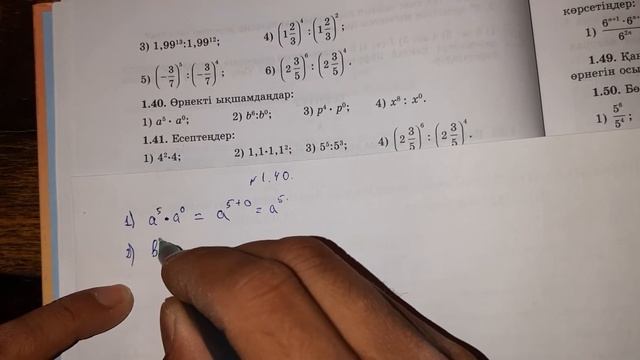 3) 1,99¹³:1,99¹²; 4) (1 2/3)⁴ : (1 2/3)²;
5) (−3/7)⁵ : (−3/7)⁴; 6) (2 3/5)⁶ : (2 3/5)⁴.
1.40. Өрнекті ықшамдаңдар:
1) a⁵ · a⁰; 2) b⁶:b⁰; 3) p⁴ · p⁰; 4) x⁸ : x⁰.
1.41. Есептеңдер:
1) 4²·4; 2) 1,1·1,1²; 3) 5⁵:5³; 4) (2 3/5)⁶ : (2 3/5)⁴.
көрсетіңдер:
1) 6ⁿ⁺¹ · 6ⁿ⁺
6²ⁿ
1.49. Қан
өрнегін осы
1.50. Бө
1) 5⁶/5⁴ ;
№1.40.
1) a⁵ · a⁰ = a⁵⁺⁰ = a⁵.
2) b